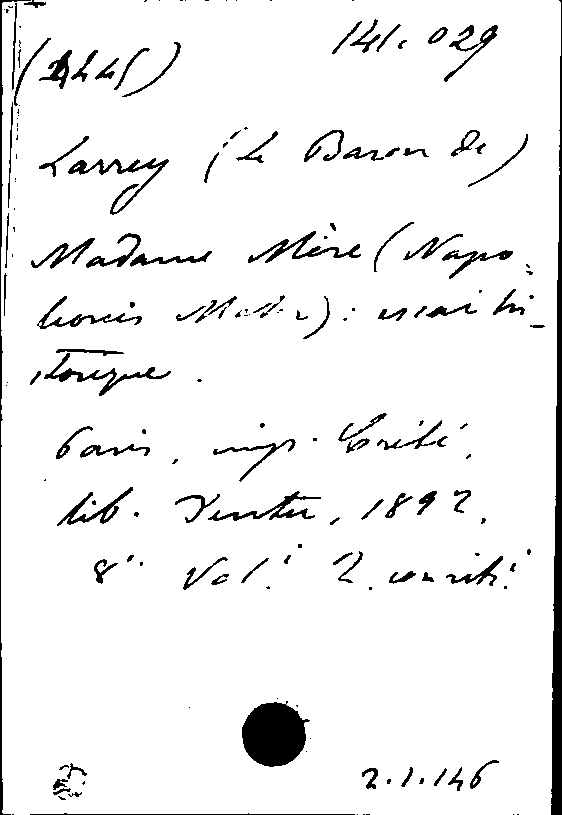 141.029
(2445)
Larrey (Le Baron de)
Madame Mère (Napo-
leonis Mater): essai hi-
storique.
Paris, imp. Crété,
lib. Dentu, 1892.
8°. Vol. 2
2.1.146